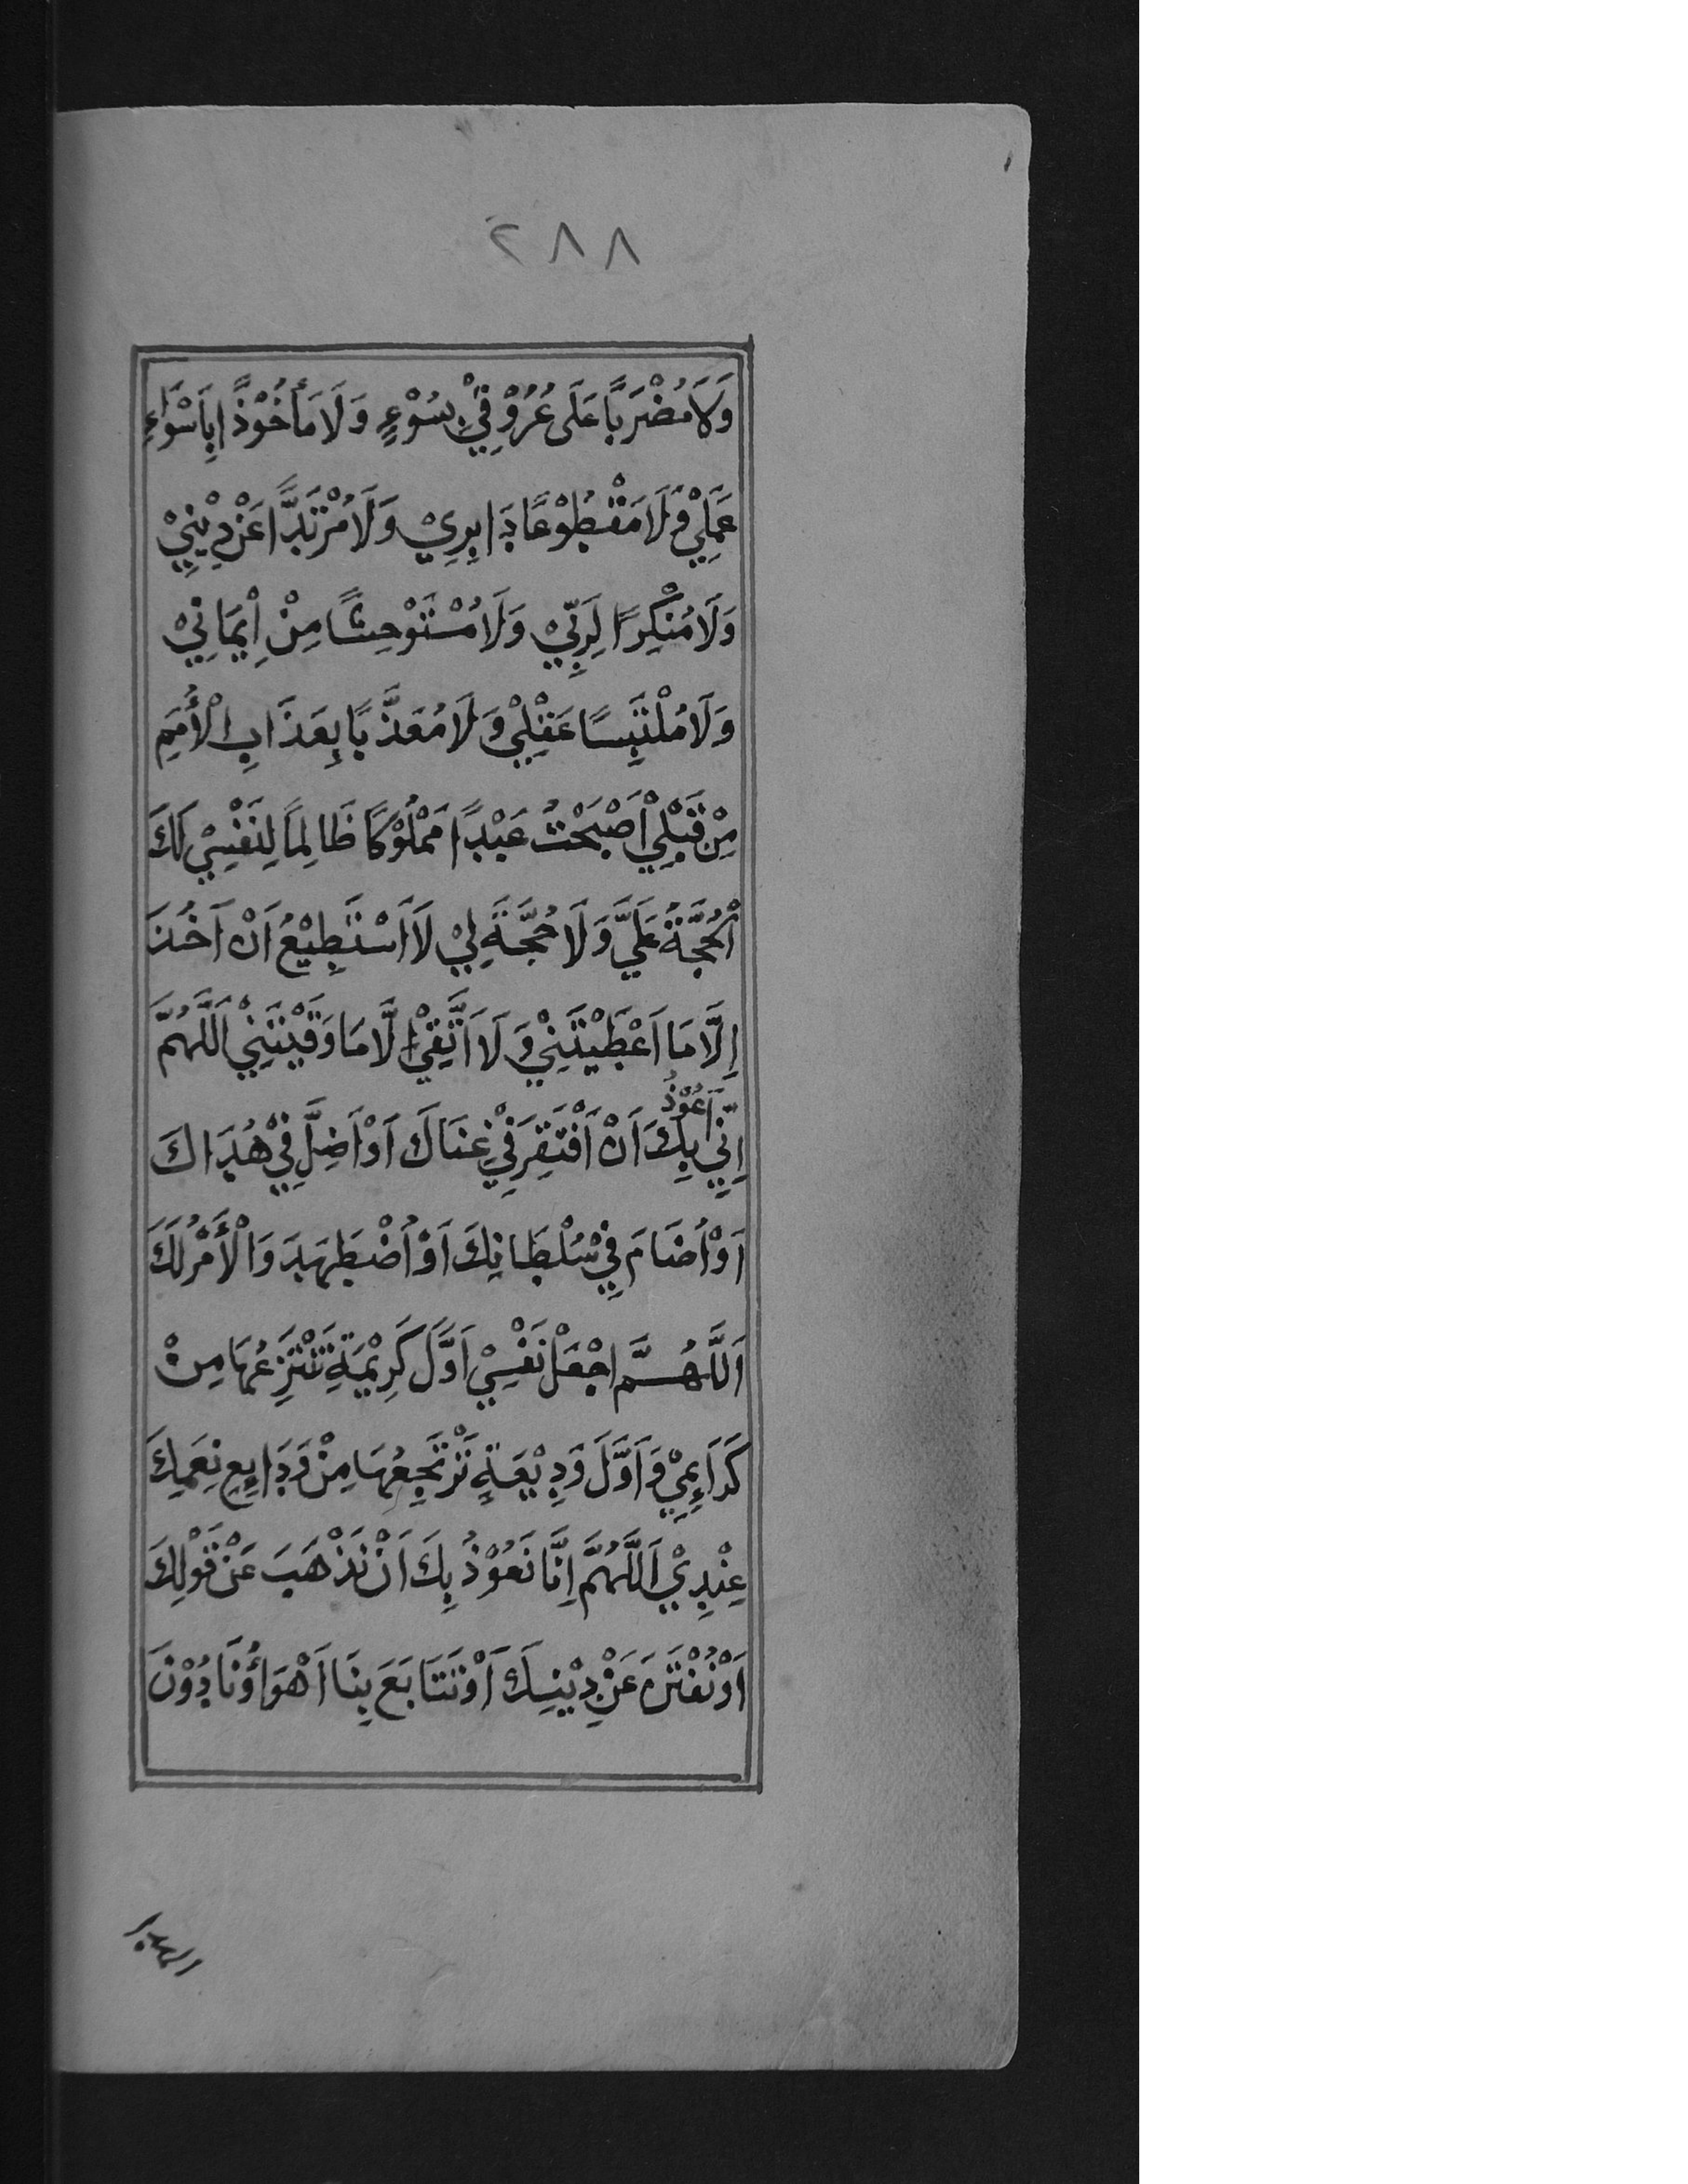 ٢٨٨
وَلَا مُضْرَبًا عَلَى عُرُوْقِيْ بِسُوْءٍ وَلَا مَأْخُوْذًا بِاَسْوَاءِ
عَمَلِيْ وَلَا مَقْطُوْعًا دَابِرِيْ وَلَا مُرْتَدًّا عَنْ دِيْنِيْ
وَلَا مُنْكِرًا لِرَبِّيْ وَلَا مُسْتَوْحِشًا مِنْ اِيْمَانِيْ
وَلَا مُلْتَبِسًا عَقْلِيْ وَلَا مُعَذَّبًا بِعَذَابِ الْأُمَمِ
مِنْ قَبْلِيْ اَصْبَحْتُ عَبْدًا مَمْلُوْكًا ظَالِمًا لِنَفْسِيْ لَكَ
الْحُجَّةُ عَلَيَّ وَلَا حُجَّةَ لِيْ لَا اَسْتَطِيْعُ اَنْ اَخُذَ
اِلَّا مَا اَعْطَيْتَنِيْ وَلَا اَتَّقِيْ اِلَّا مَا وَقَيْتَنِيْ اَللّٰهُمَّ
اِنِّيْ اَعُوْذُ بِكَ اَنْ اَفْتَقِرَ فِيْ غِنَاكَ اَوْ اَضِلَّ فِيْ هُدَاكَ
اَوْ اُضَامَ فِيْ سُلْطَانِكَ اَوْ اُضْطَهَدَ وَالْأَمْرُ لَكَ
اَللّٰهُمَّ اجْعَلْ نَفْسِيْ اَوَّلَ كَرِيْمَةٍ تَنْتَزِعُهَا مِنْ
كَرَاءِمِيْ وَاَوَّلَ وَدِيْعَةٍ تَرْتَجِعُهَا مِنْ وَدَايِعِ نِعَمِكَ
عِنْدِيْ اَللّٰهُمَّ اِنَّا نَعُوْذُ بِكَ اَنْ نَذْهَبَ عَنْ قَوْلِكَ
اَوْ نُفْتَنَ عَنْ دِيْنِكَ اَوْ نَتَابَعَ بِنَا اَهْوَاؤُنَا دُوْنَ